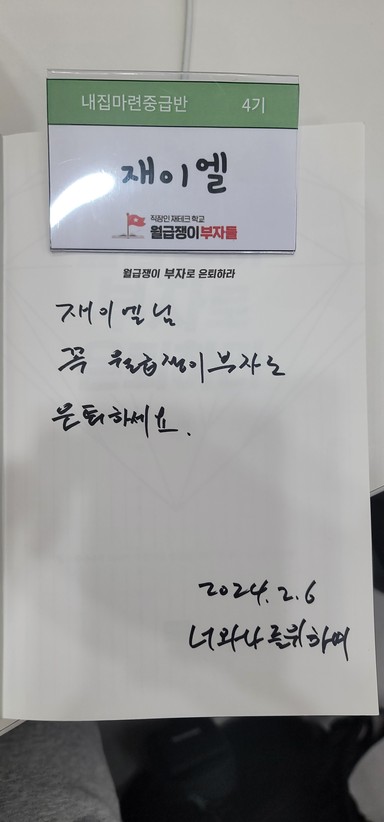 내집마련중급반 4기
재이엘
직장인 재테크 학교
월급쟁이부자들
월급쟁이 부자로 은퇴하라
재이엘님
꼭 월급쟁이부자로
은퇴하세요.
2024. 2. 6
너와나를위하여